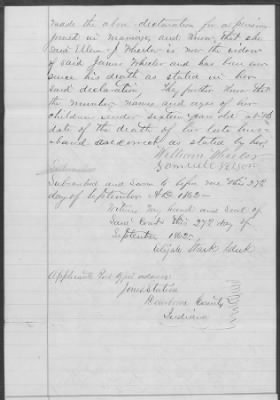 made the above declaration for a pension
and know that she
said Ellen J Wheeler is now the widow
of said James Wheeler and has been ever
since his death as stated in her
said declaration, They further know that
the number names and ages of her
children under sixteen years old at the
date of the death of her late hus-
band are correct as stated by her
William Wheeler
Subscribed and sworn to before me this 27th
day of September A D 1862
Witness my hand and Seal of
said Court this 27th day of
September 1862
Elijah Stark Clerk
Applicants Post office address
Jones Station
Dearborn County
Indiana